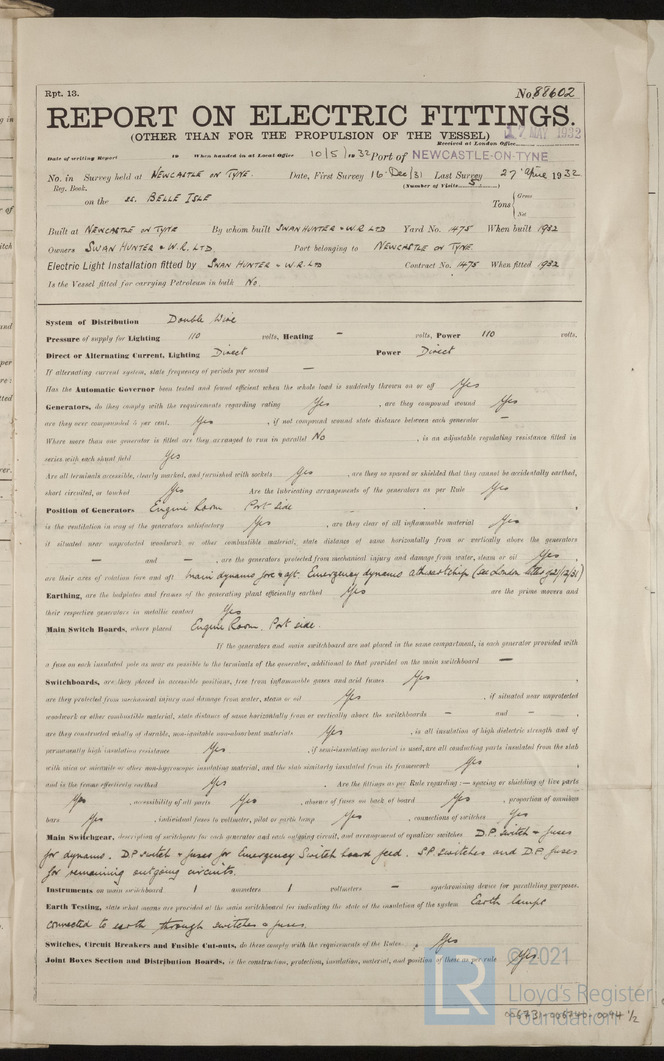 Rpt. 13.
No. 88602
REPORT ON ELECTRIC FITTINGS.
(OTHER THAN FOR THE PROPULSION OF THE VESSEL)
17 MAY 1932
Received at London Office
Date of writing Report 19 When handed in at Local Office 10/5/1932 Port of NEWCASTLE-ON-TYNE
No. in Survey held at Newcastle on Tyne. Date, First Survey 16 Dec/31 Last Survey 27 April 1932
Reg. Book. (Number of Visits 5)
on the ss. Belle Isle Tons { Gross
Net
Built at Newcastle on Tyne By whom built Swan Hunter & W.R. Ltd Yard No. 1475 When built 1932
Owners Swan Hunter & W.R. Ltd. Port belonging to Newcastle on Tyne.
Electric Light Installation fitted by Swan Hunter & W.R. Ltd Contract No. 1475 When fitted 1932
Is the Vessel fitted for carrying Petroleum in bulk No.
System of Distribution Double Wire
Pressure of supply for Lighting 110 volts, Heating – volts, Power 110 volts.
Direct or Alternating Current, Lighting Direct Power Direct
If alternating current system, state frequency of periods per second —
Has the Automatic Governor been tested and found efficient when the whole load is suddenly thrown on or off Yes
Generators, do they comply with the requirements regarding rating Yes , are they compound wound Yes
are they over compounded 5 per cent. Yes , if not compound wound state distance between each generator –
Where more than one generator is fitted are they arranged to run in parallel No , is an adjustable regulating resistance fitted in
series with each shunt field Yes
Are all terminals accessible, clearly marked, and furnished with sockets Yes , are they so spaced or shielded that they cannot be accidentally earthed,
short circuited, or touched Yes Are the lubricating arrangements of the generators as per Rule Yes
Position of Generators Engine Room Port Side
is the ventilation in way of the generators satisfactory Yes , are they clear of all inflammable material Yes
if situated near unprotected woodwork or other combustible material, state distance of same horizontally from or vertically above the generators
– and – , are the generators protected from mechanical injury and damage from water, steam or oil Yes
are their axes of rotation fore and aft Main dynamo fore & aft. Emergency dynamo athwartships (see London letter 21/12/31)
Earthing, are the bedplates and frames of the generating plant efficiently earthed Yes are the prime movers and
their respective generators in metallic contact Yes
Main Switch Boards, where placed Engine Room. Port side.
If the generators and main switchboard are not placed in the same compartment, is each generator provided with
a fuse on each insulated pole as near as possible to the terminals of the generator, additional to that provided on the main switchboard —
Switchboards, are they placed in accessible positions, free from inflammable gases and acid fumes Yes
are they protected from mechanical injury and damage from water, steam or oil Yes , if situated near unprotected
woodwork or other combustible material, state distance of same horizontally from or vertically above the switchboards – and –
are they constructed wholly of durable, non-ignitable non-absorbent materials Yes , is all insulation of high dielectric strength and of
permanently high insulation resistance Yes , if semi-insulating material is used, are all conducting parts insulated from the slab
with mica or micanite or other non-hygroscopic insulating material, and the slab similarly insulated from its framework Yes
and is the frame effectively earthed Yes . Are the fittings as per Rule regarding :— spacing or shielding of live parts
Yes , accessibility of all parts Yes , absence of fuses on back of board Yes , proportion of omnibus
bars Yes , individual fuses to voltmeter, pilot or earth lamp Yes , connections of switches Yes
Main Switchgear, description of switchgear for each generator and each outgoing circuit, and arrangement of equalizer switches D.P. Switch & fuses
for dynamo. D.P. switch & fuses for Emergency Switch board feed. S.P. Switches and D.P. fuses
for remaining outgoing circuits.
Instruments on main switchboard 1 ammeters 1 voltmeters – synchronising device for paralleling purposes.
Earth Testing, state what means are provided at the main switchboard for indicating the state of the insulation of the system Earth lamps
connected to earth through switches & fuses.
Switches, Circuit Breakers and Fusible Cut-outs, do these comply with the requirements of the Rules Yes
Joint Boxes Section and Distribution Boards, is the construction, protection, insulation, material, and position of these as per rule Yes.
LR
© 2021
Lloyd's Register
Foundation
006731-006740-0094 1/2